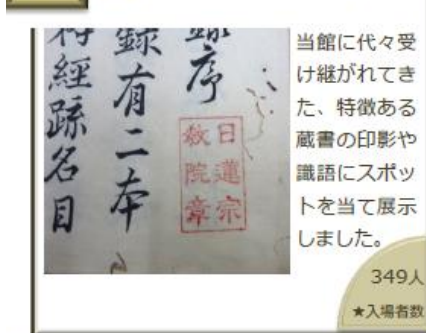 序
錄有二本
經疏名目
日蓮宗
教院章
当館に代々受
け継がれてき
た、特徴ある
蔵書の印影や
識語にスポッ
トを当て展示
しました。
349人
★入場者数